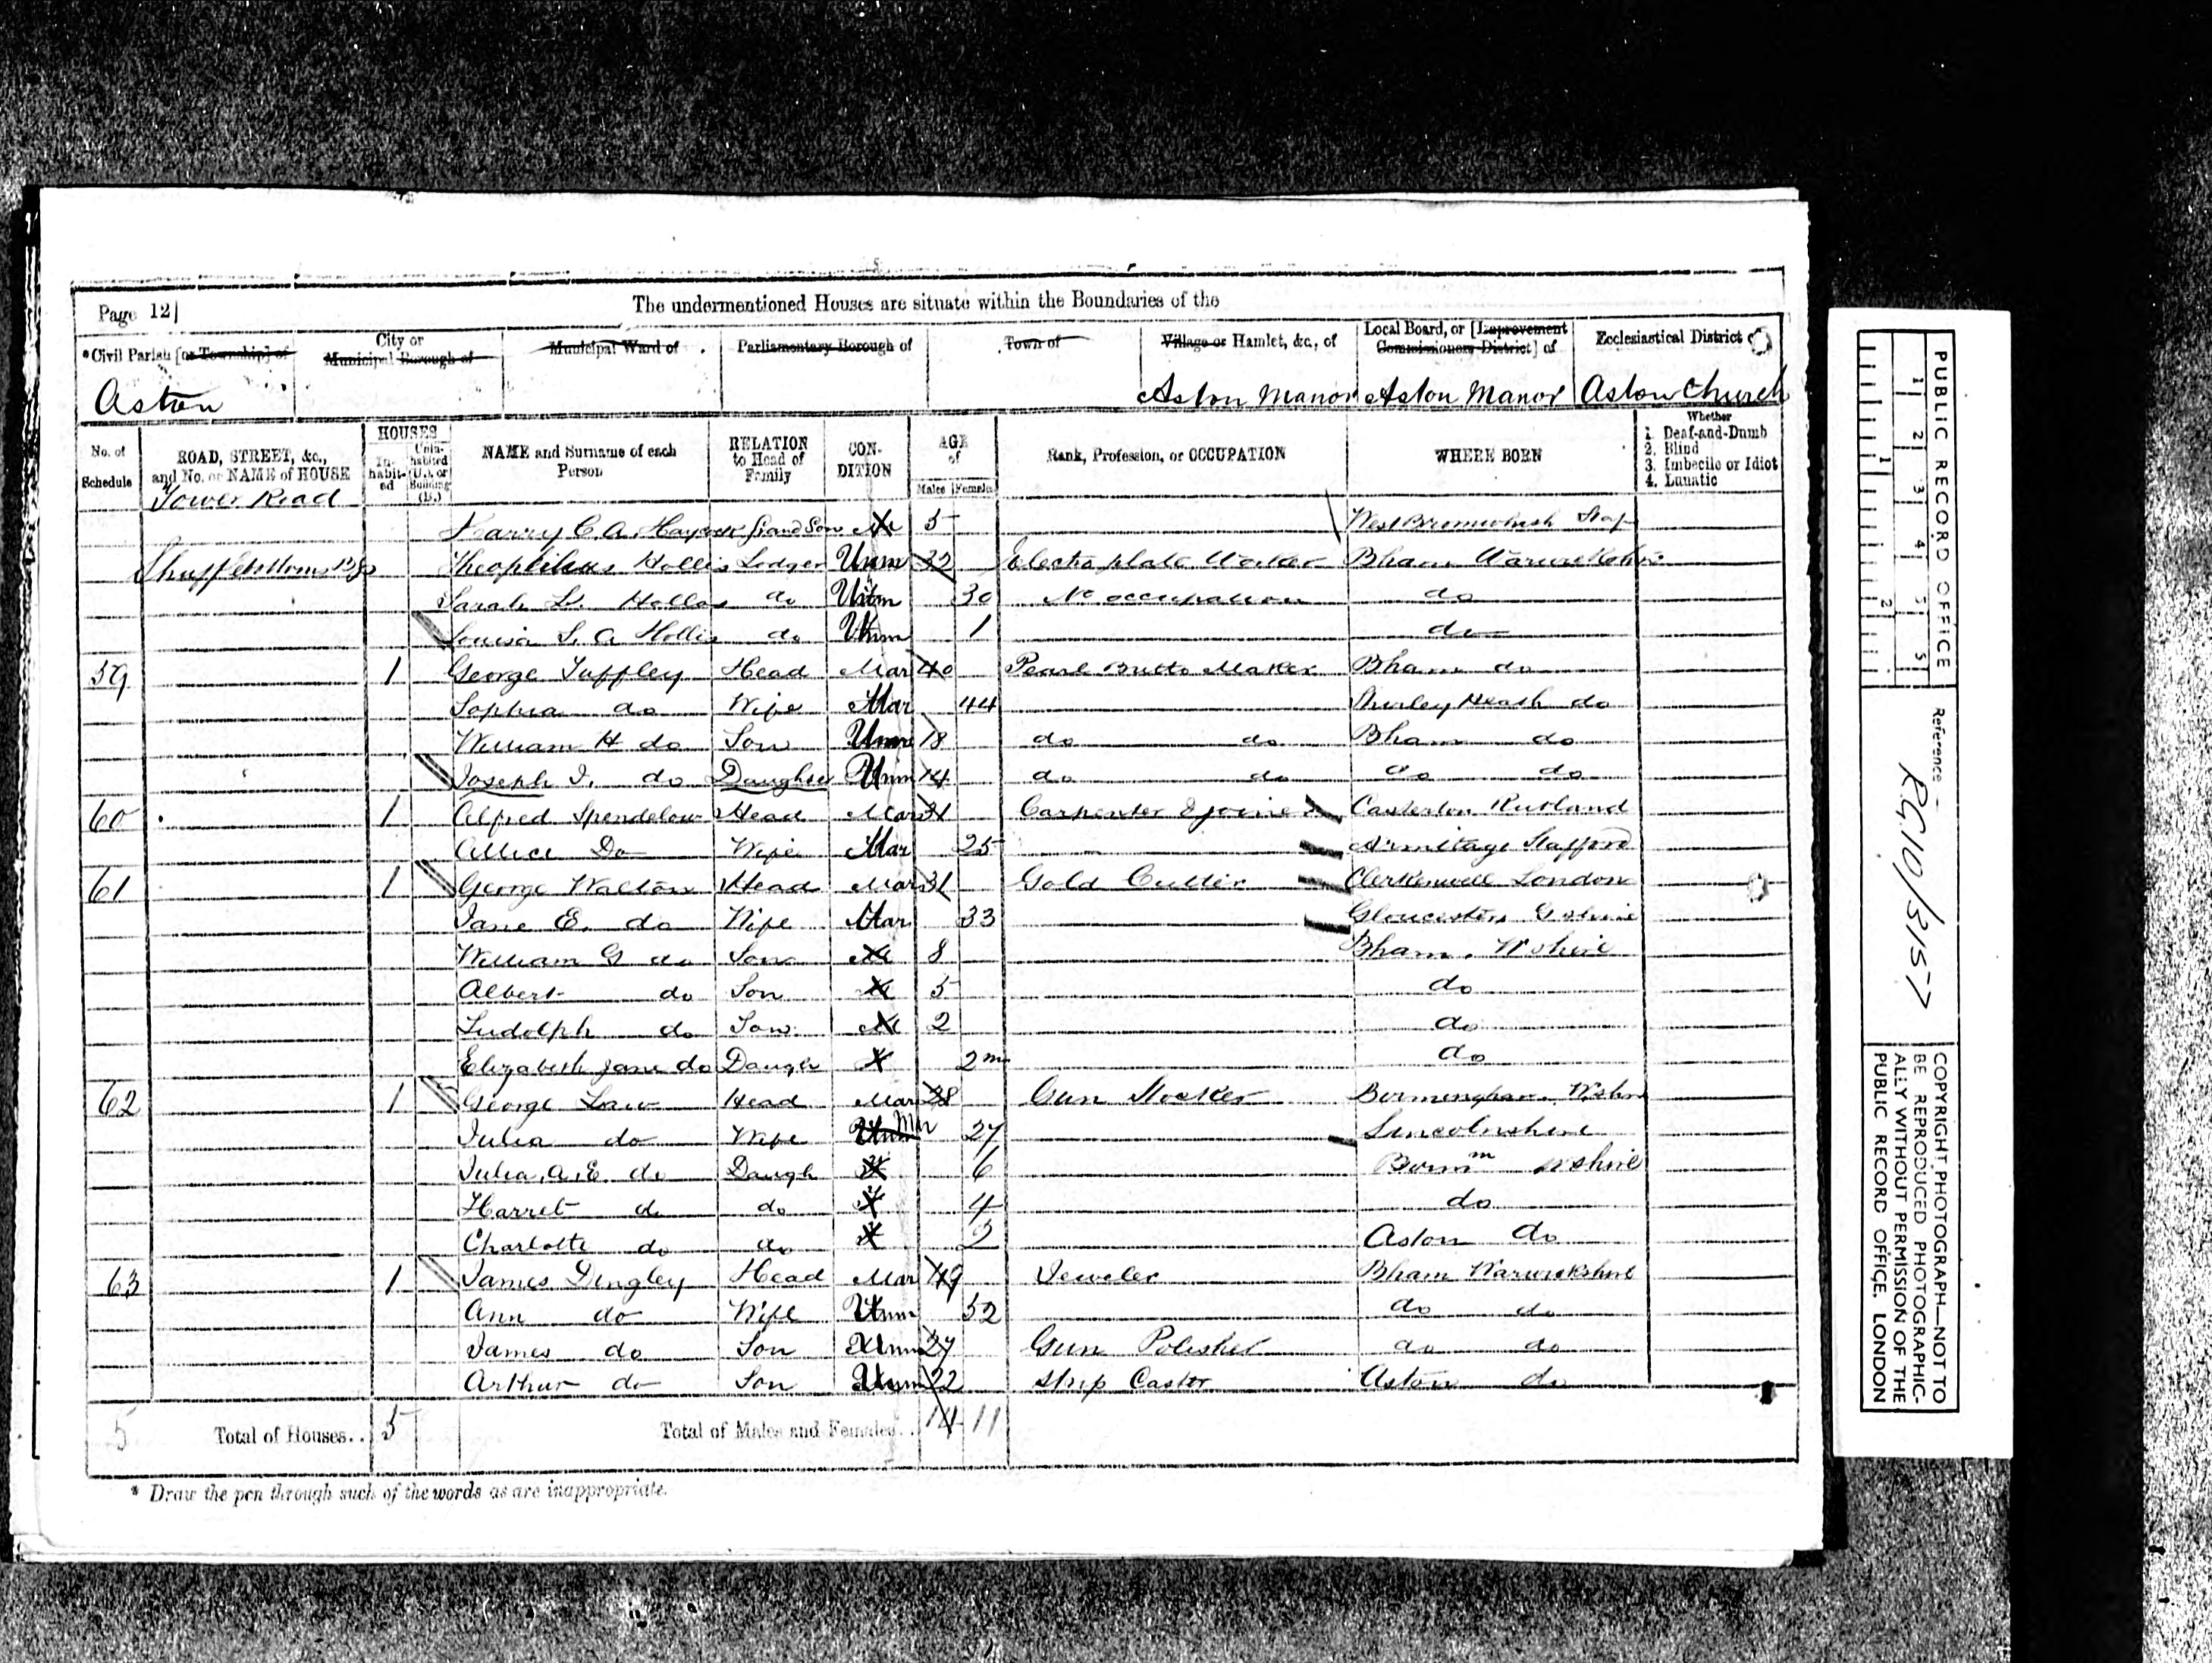 Page 12
The undermentioned Houses are situate within the Boundaries of the
*Civil Parish [or Township] of
City or Municipal Borough of
Municipal Ward of
Parliamentary Borough of
Town of
Village or Hamlet, &c., of
Local Board, or [Improvement Commissioners District] of
Ecclesiastical District of
Aston Aston Manor Aston Manor Aston Church
No. of Schedule
ROAD, STREET, &c., and No. or NAME of HOUSE
HOUSES
Inhabited
Uninhabited (U.), or Building (B.)
NAME and Surname of each Person
RELATION to Head of Family
CONDITION
AGE of
Males Females
Rank, Profession, or OCCUPATION
WHERE BORN
Whether
1. Deaf-and-Dumb
2. Blind
3. Imbecile or Idiot
4. Lunatic
Tower Road
Harry C. A. Grand Son 5 West Bromwich Staf
Theophilus Hollis Lodger Unm 32 Electro plate Worker Bham Warwickshire
Sarah Hollis do Unm 30 No occupation do
Louisa S. A Hollis do Unm 1 do
59 1 George Tuffley Head Mar 40 Pearl Butto Maker Bham do
Sophia do Wife Mar 44 Shirley Heath do
William H do Son Unm 18 do do Bham do
Joseph J. do Daughter Unm 14 do do do do
60 1 Alfred Spendelow Head Mar 31 Carpenter & Joiner Casterton Rutland
Allice Do Wife Mar 25 Armitage Stafford
61 1 George Walton Head Mar 31 Gold Cutter Clerkenwell London
Jane E. do Wife Mar 33 Gloucester, G shire
William G do Son 8 Bham. W shire
Albert do Son 5 do
Ludolph do Son 2 do
Elizabeth Jane do Daugh 2m do
62 1 George Law Head Mar 28 Gun Stocker Birmingham Wshire
Julia do Wife Unm Mar 27 Lincolnshire
Julia. A. E. do Daugh 6 Birmm W shire
Harret do do 4 do
Charlotte do do 2 Aston do
63 1 James Dingley Head Mar 49 Jeweler Bham Warwickshire
Ann do Wife Unm 52 do do
James do Son Unm 27 Gun Polisher do do
Arthur do Son Unm 22 Strip Caster Aston do
5 Total of Houses.. 5 Total of Males and Females.. 14 11
* Draw the pen through such of the words as are inappropriate.
PUBLIC RECORD OFFICE
1 2 3 4 5
1 2
Reference:-
RG 10/3157
COPYRIGHT PHOTOGRAPH—NOT TO
BE REPRODUCED PHOTOGRAPHIC-
ALLY WITHOUT PERMISSION OF THE
PUBLIC RECORD OFFICE, LONDON